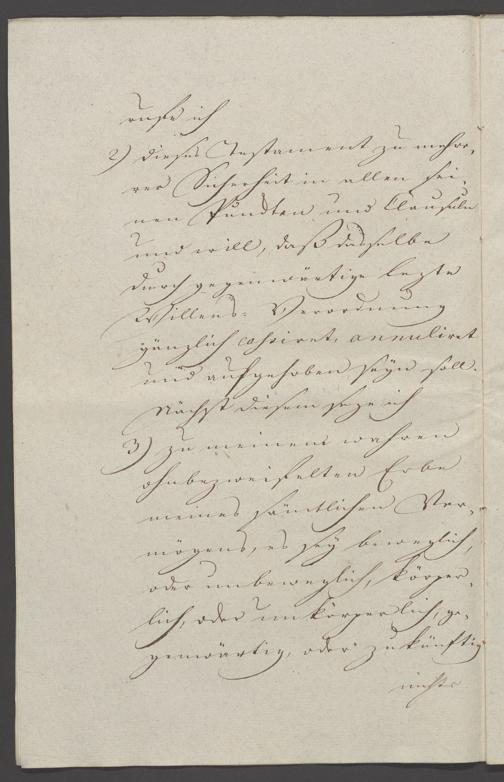 rufe ich
2) dieses Testament zu mehre-
rer Sicherheit in allen sei-
nen Pundten und Clauseln
und will, daß dasselbe
durch gegenwärtige lezte
Willens-Verordnung
gänzlich cassiret, annuliret
und aufgehoben seyn soll.
Nächst diesem seze ich
3) zu meinem wahren
ohnbezweifelten Erbe
meines sämtlichen Ver-
mögens, es sey beweglich,
oder unbeweglich, körper-
lich, oder unkörperlich, ge-
genwärtig, oder zukünftig
nichts